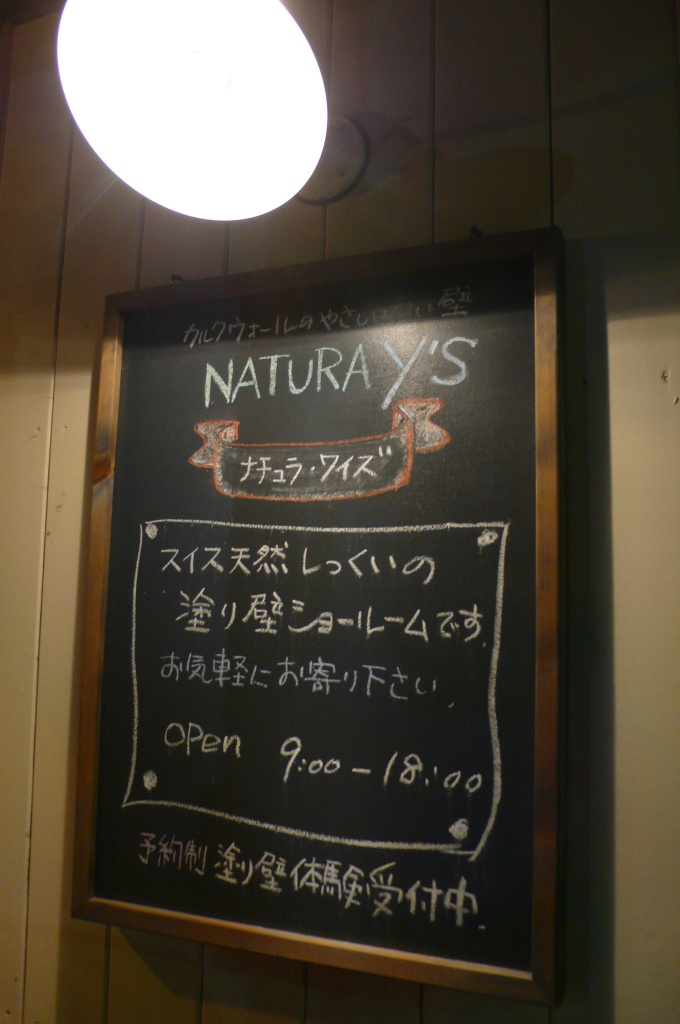 カルクウォールのやさしい 壁
NATURA Y'S
ナチュラ・ワイズ
スイス天然しっくいの
塗り壁ショールームです。
お気軽にお寄り下さい。
OPen 9:00-18:00
予約制 塗り壁体験受付中.